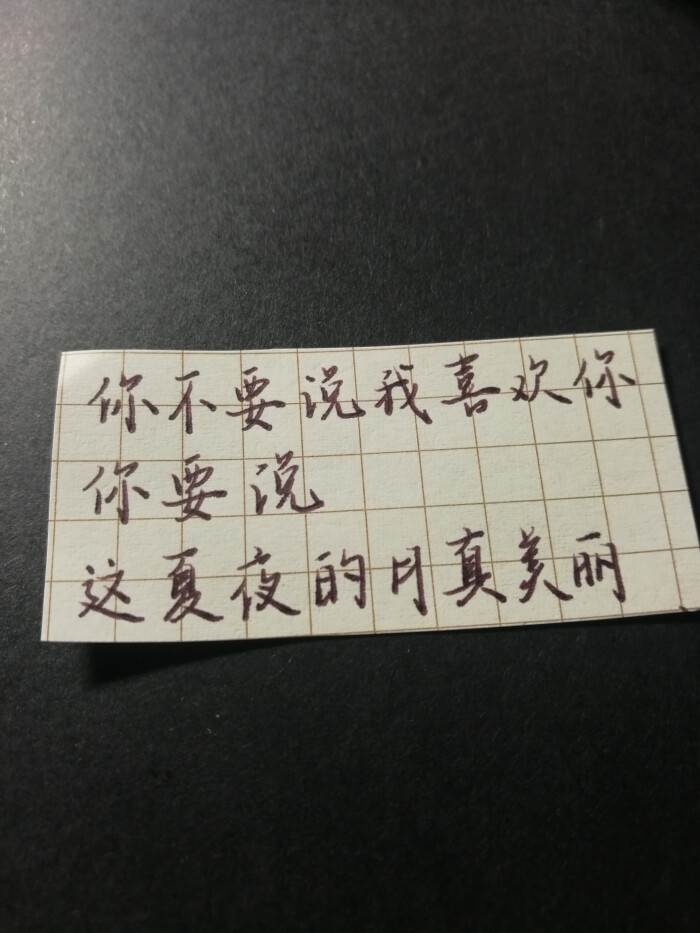 你不要说我喜欢你
你要说
这夏夜的月真美丽